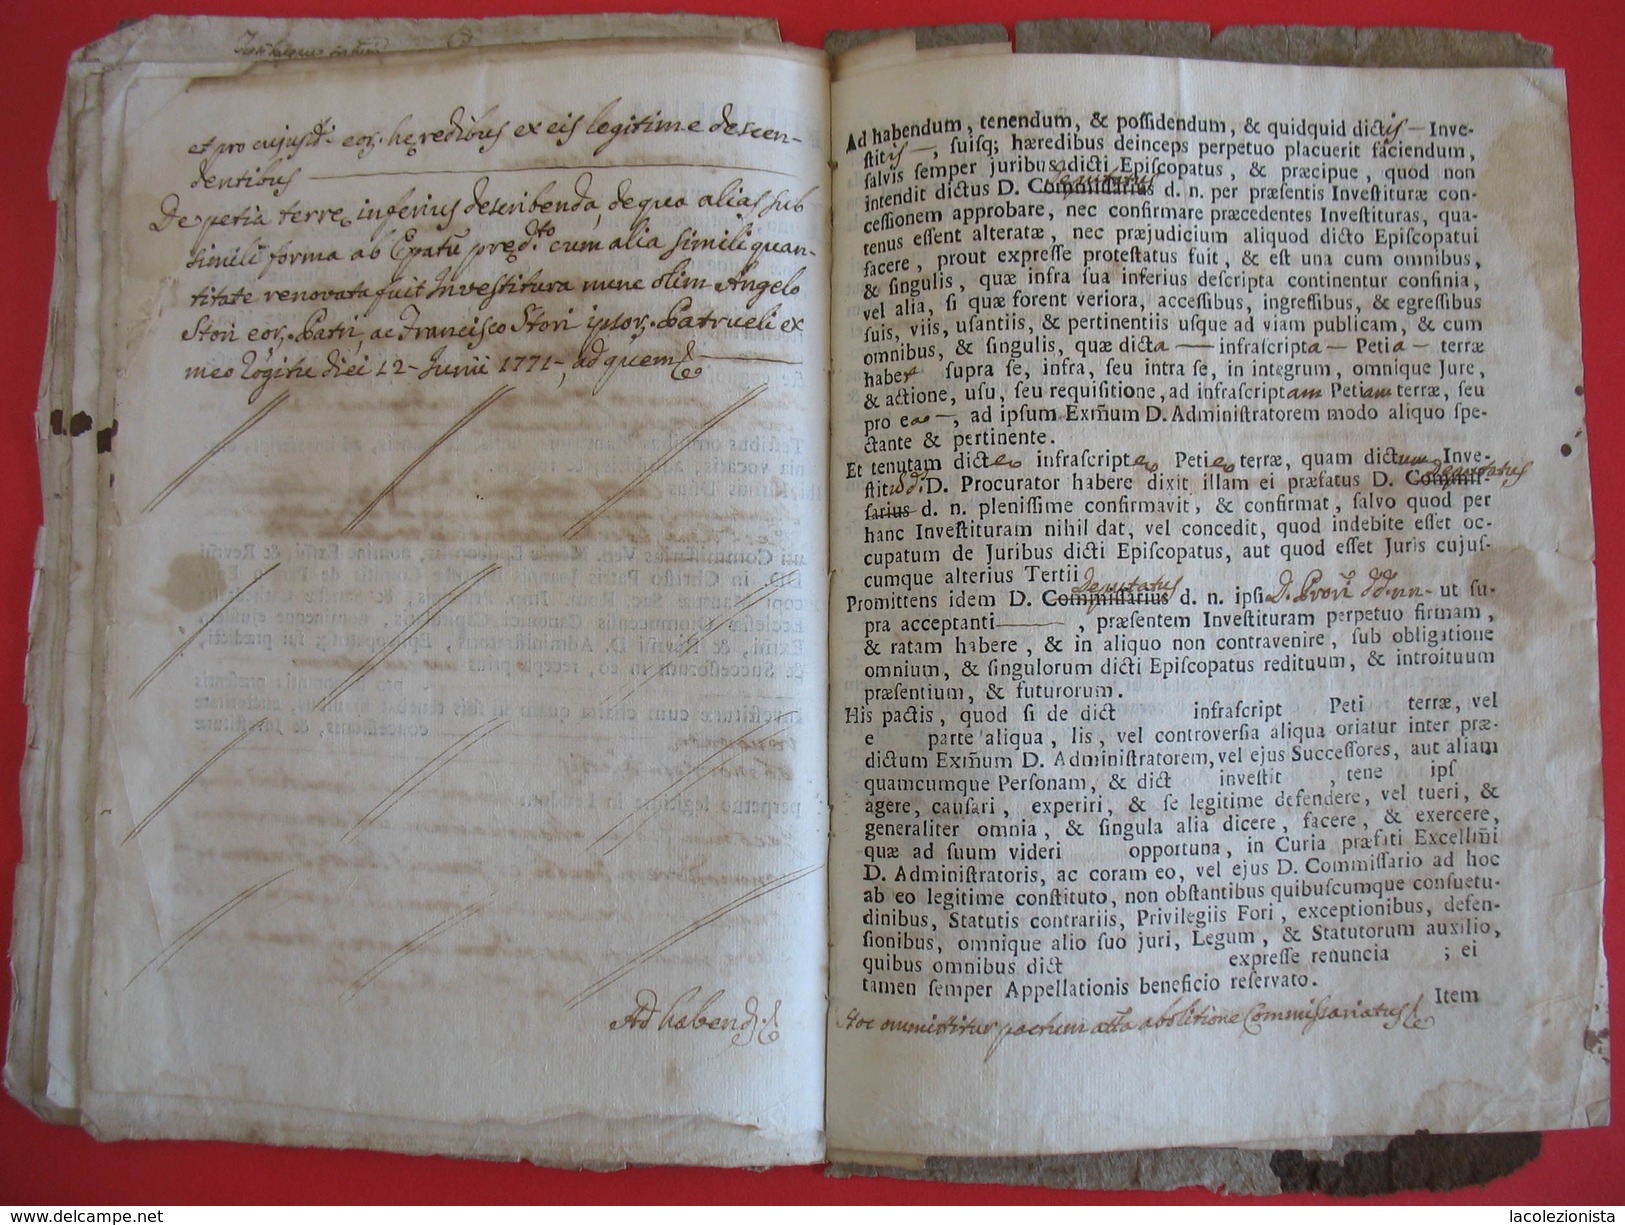 et pro cujusd. eor. hęredibus ex eis legitime descen-
dentibus
De petia terrę inferius describenda, de qua alias sub
simili forma ab Epatu pręd.to cum alia simili quan-
titate renovata fuit Investitura nunc olim Angelo
Stori eor. Patri, ac Francisco Stori ipsor. Patrueli ex
meo Rogitu diei 12 Junii 1771, ad quem &
Ad habend. &
Ad habendum, tenendum, & possidendum, & quidquid dictis — Inve-
stitis —, suisq; hæredibus deinceps perpetuo placuerit faciendum,
salvis semper juribus dicti Episcopatus, & præcipue, quod non
deputatus
intendit dictus D. Commissarius d. n. per præsentis Investituræ con-
cessionem approbare, nec confirmare præcedentes Investituras, qua-
tenus essent alteratæ, nec præjudicium aliquod dicto Episcopatui
facere, prout expresse protestatus fuit, & est una cum omnibus,
& singulis, quæ infra sua inferius descripta continentur confinia,
vel alia, si quæ forent veriora, accessibus, ingressibus, & egressibus
suis, viis, usantiis, & pertinentiis usque ad viam publicam, & cum
omnibus, & singulis, quæ dicta — infrascripta — Petia — terræ
habet supra se, infra, seu intra se, in integrum, omnique Jure,
& actione, usu, seu requisitione, ad infrascriptam Petiam terræ, seu
pro ea —, ad ipsum Exm̃um D. Administratorem modo aliquo spe-
ctante & pertinente.
Et tenutam dictę infrascriptę Petię terræ, quam dictum Inve-
deputatus
stit D. Procurator habere dixit illam ei præfatus D. Commis-
sarius d. n. plenissime confirmavit, & confirmat, salvo quod per
hanc Investituram nihil dat, vel concedit, quod indebite esset oc-
cupatum de Juribus dicti Episcopatus, aut quod esset Juris cujus-
cumque alterius Tertii
deputatus
Promittens idem D. Commissarius d. n. ipsi D. ut su-
pra acceptanti —, præsentem Investituram perpetuo firmam,
& ratam habere, & in aliquo non contravenire, sub obligatione
omnium, & singulorum dicti Episcopatus redituum, & introituum
præsentium, & futurorum.
His pactis, quod si de dict infrascript Peti terræ, vel
e parte aliqua, lis, vel controversia aliqua oriatur inter præ-
dictum Exm̃um D. Administratorem, vel ejus Successores, aut aliam
quamcumque Personam, & dict investit , tene ips
agere, causari, experiri, & se legitime defendere, vel tueri, &
generaliter omnia, & singula alia dicere, facere, & exercere,
quæ ad suum videri opportuna, in Curia præfati Excellm̃i
D. Administratoris, ac coram eo, vel ejus D. Commissario ad hoc
ab eo legitime constituto, non obstantibus quibuscumque consuetu-
dinibus, Statutis contrariis, Privilegiis Fori, exceptionibus, defen-
sionibus, omnique alio suo juri, Legum, & Statutorum auxilio,
quibus omnibus dict expresse renuncia ; ei
tamen semper Appellationis beneficio reservato.
Item
Hoc ommittitur pactum atta abolitione Commissariatus &
delcampe.net
lacolezionista